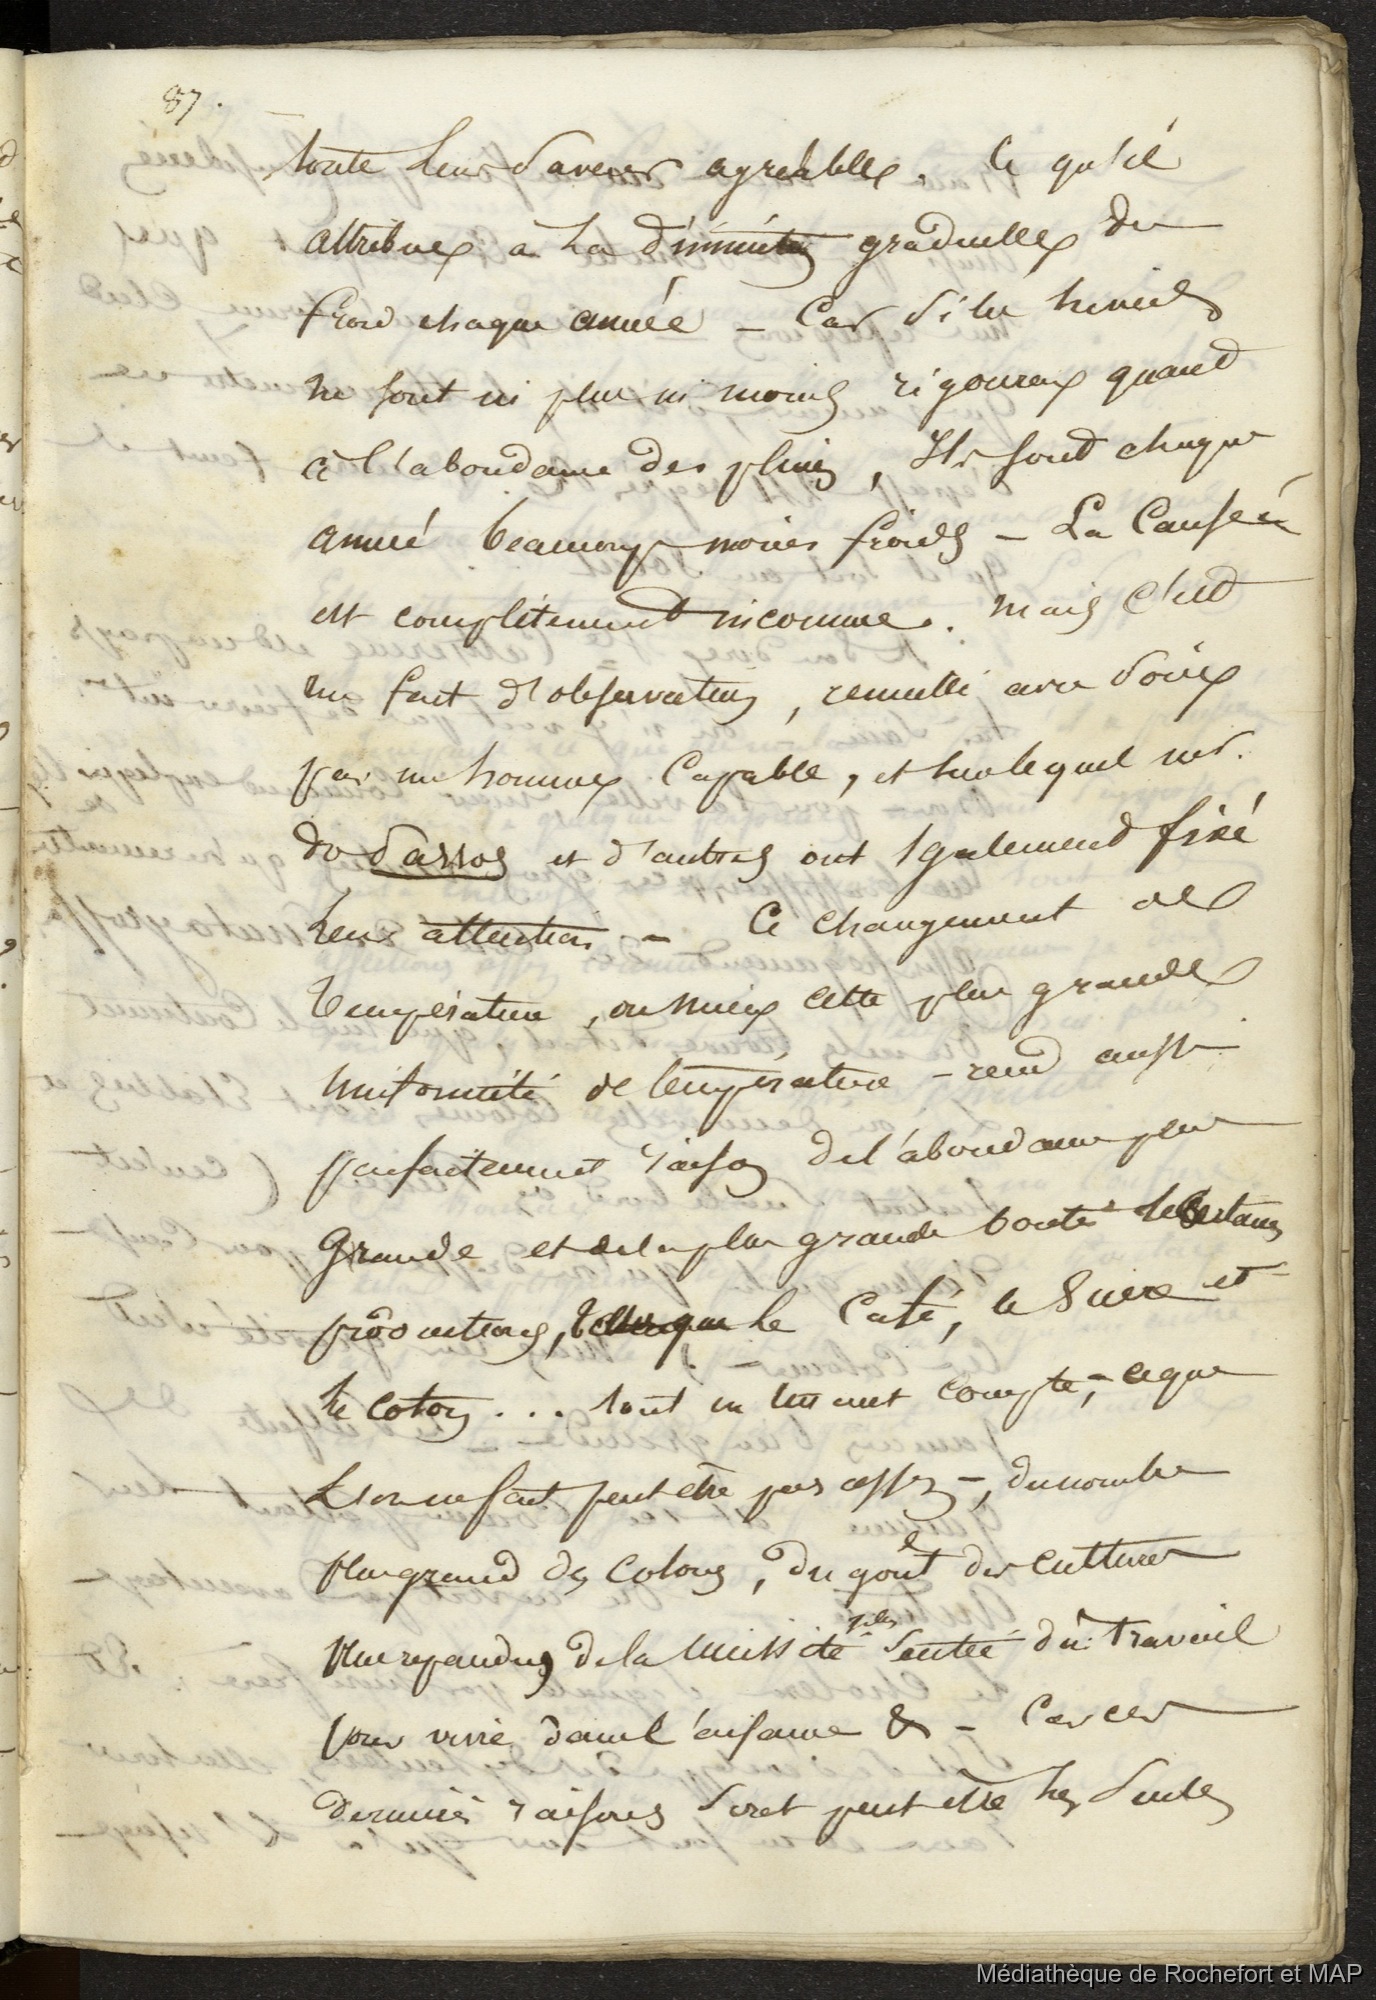 87.
toute leur saveur agréable. Ce qu'il
attribue à la diminution graduelle du
froid chaque année – Car si les hivers
ne sont ni plus ni moins rigoureux quand
à l'abondance des pluies, Ils sont chaque
année beaucoup moins froids – La Cause en
est complètement inconnue. mais C'est
un fait d'observation, recueilli avec soin
par un homme Capable, et sur lequel mr.
do Passos et d'autres ont également fixé
leur attention – Ce changement de
température, ou mieux cette plus grande
uniformité de température – rend aussi
parfaitement raison de l'abondance plus
Grande et de la plus grande bonté de Certaines
productions, telles que le Café, le Sucre et
le coton ... tout en tenant compte, – ce que
l'on ne fait peut être pas assez –, du nombre
plus grand des Colons, du goût des cultures
plus répandu, de la nécessité plus sentie du travail
pour vivre dans l'aisance & – Car ces
dernières raisons sont peut être les seules
Médiathèque de Rochefort et MAP